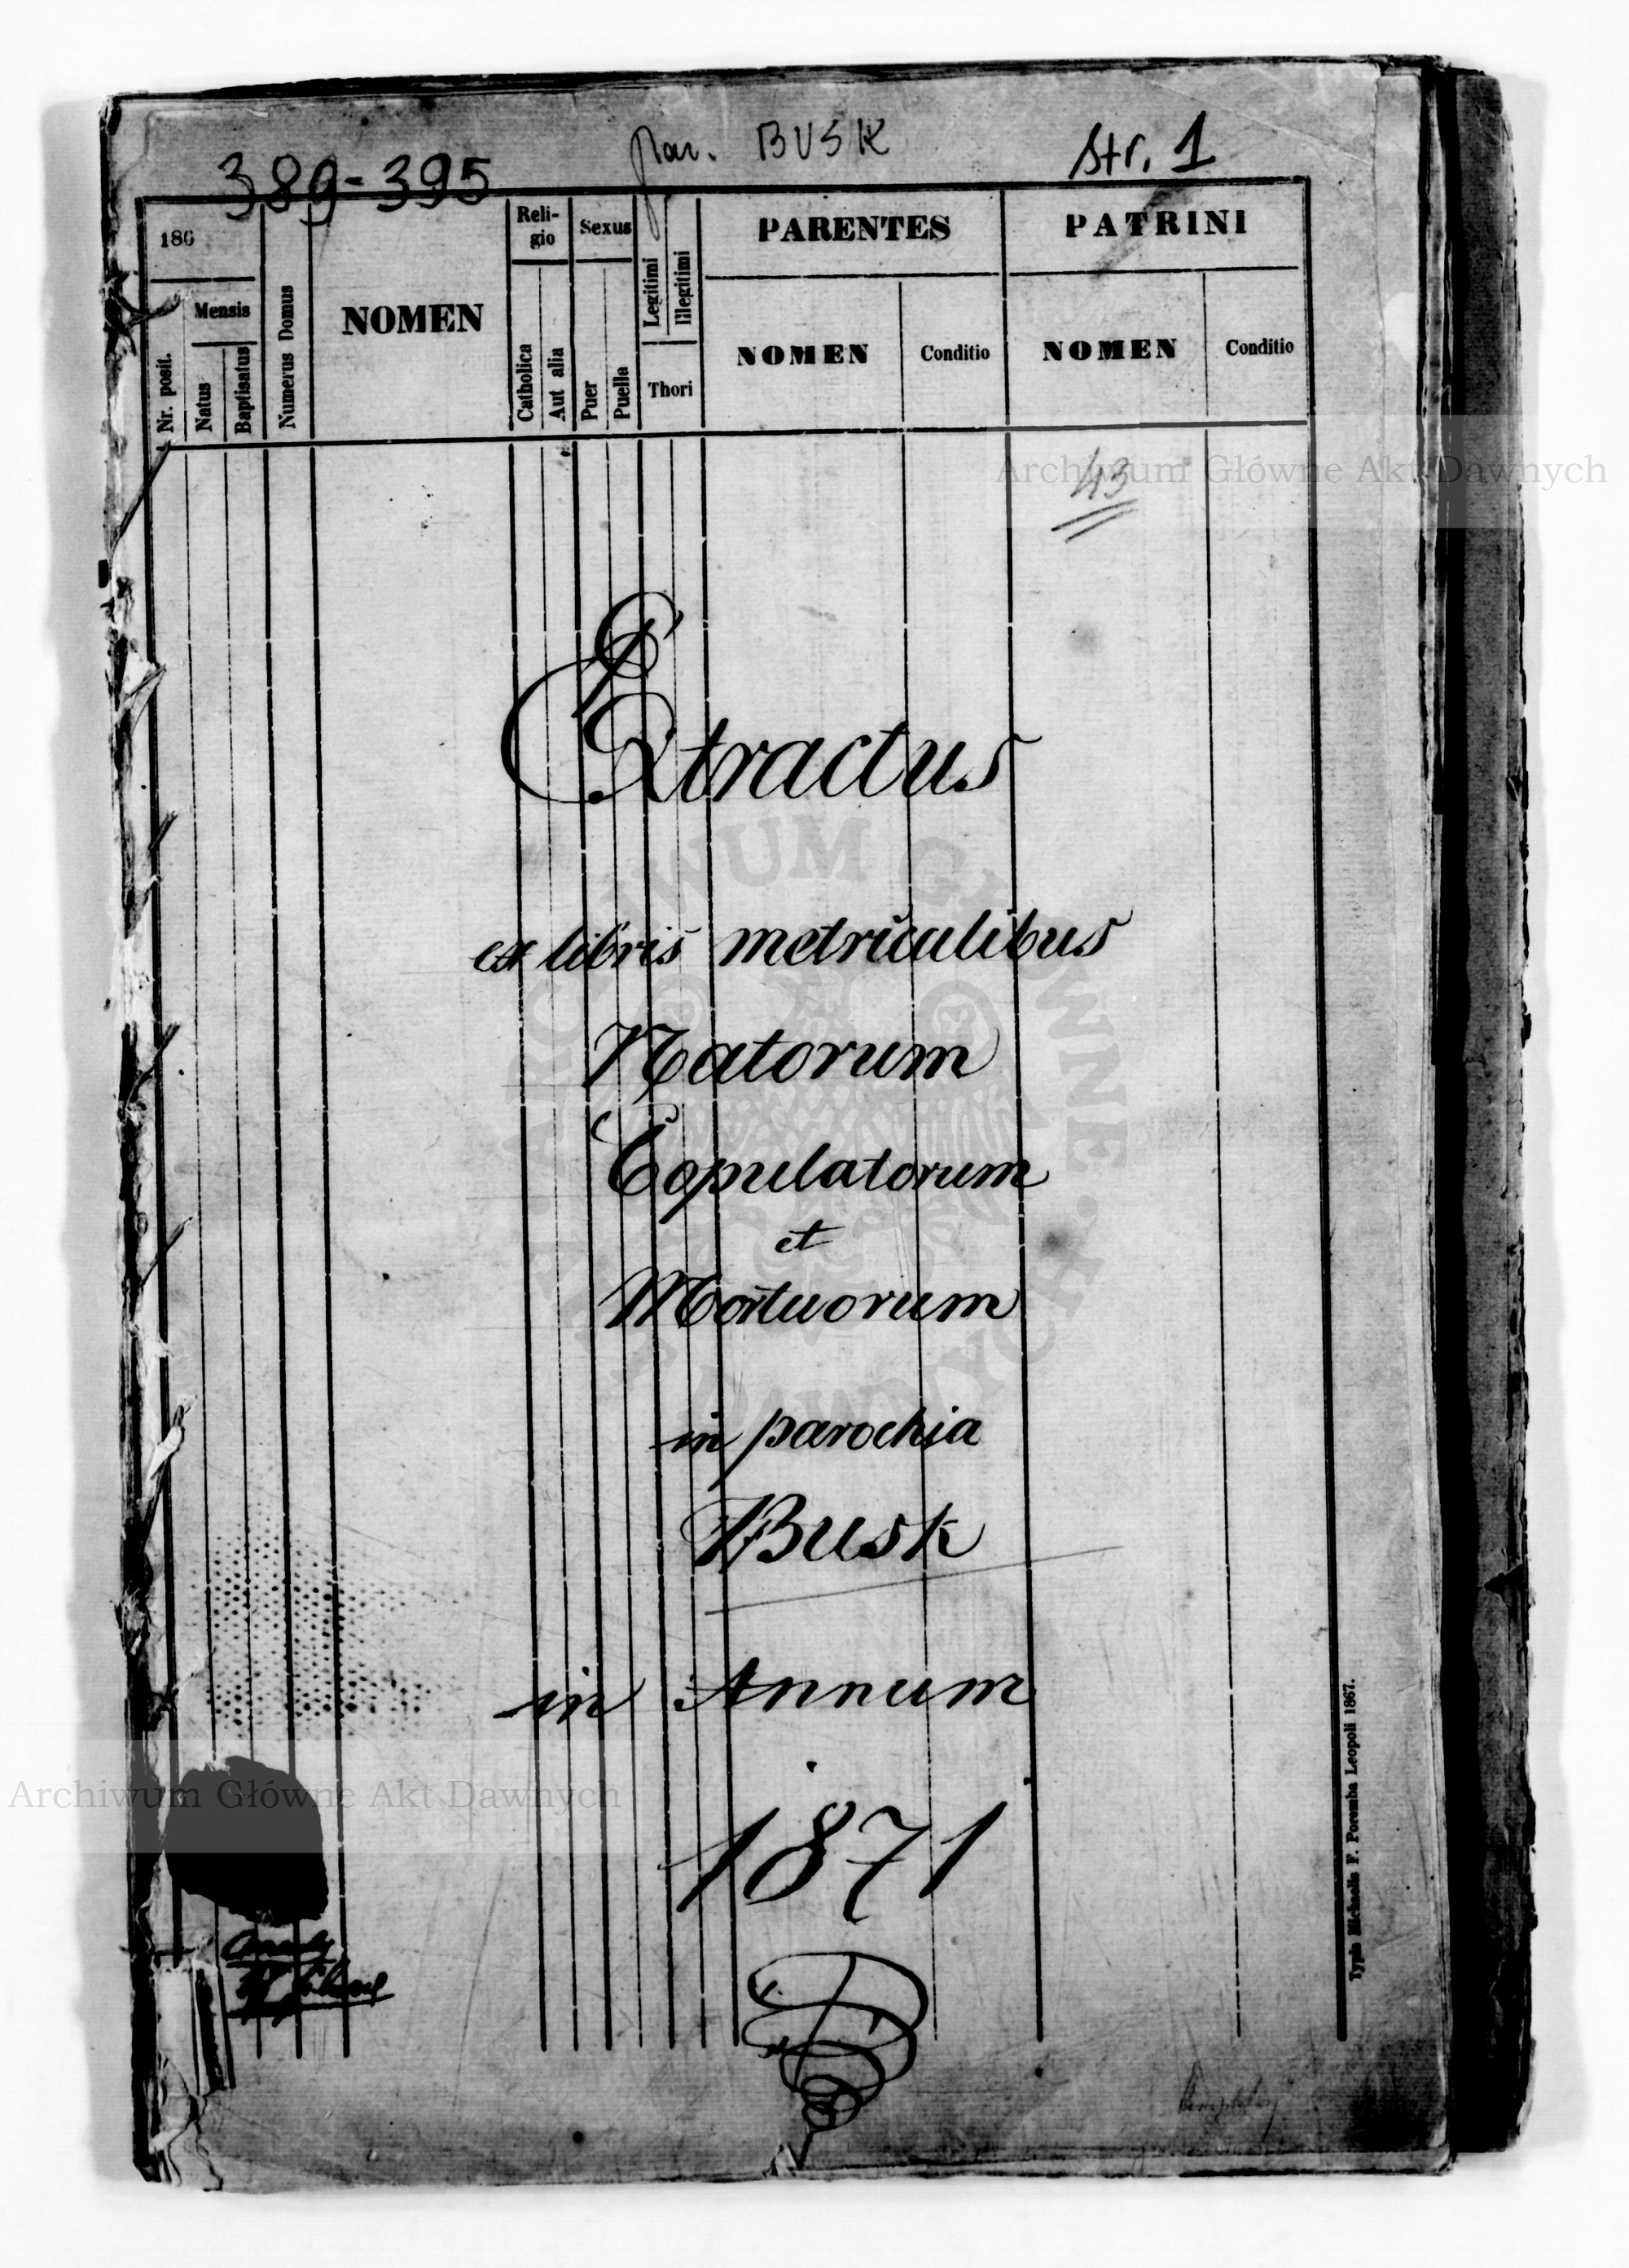 par. BUSK
389-395
str. 1
186
Mensis
Nr. posit.
Natus
Baptisatus
Numerus Domus
NOMEN
Reli-
gio
Catholica
Aut alia
Sexus
Puer
Puella
Legitimi
Illegitimi
Thori
PARENTES
NOMEN
Conditio
PATRINI
NOMEN
Conditio
43
Archiwum Główne Akt Dawnych
Extractus
ex libris metriculibus
Natorum
Copulatorum
et
Mortuorum
in parochia
Busk
in Annum
1871
Archiwum Główne Akt Dawnych
Typis Michaelis F. Poremba Leopoli 1867.
ARCHIWUM GŁÓWNE · AKT DAWNYCH ·